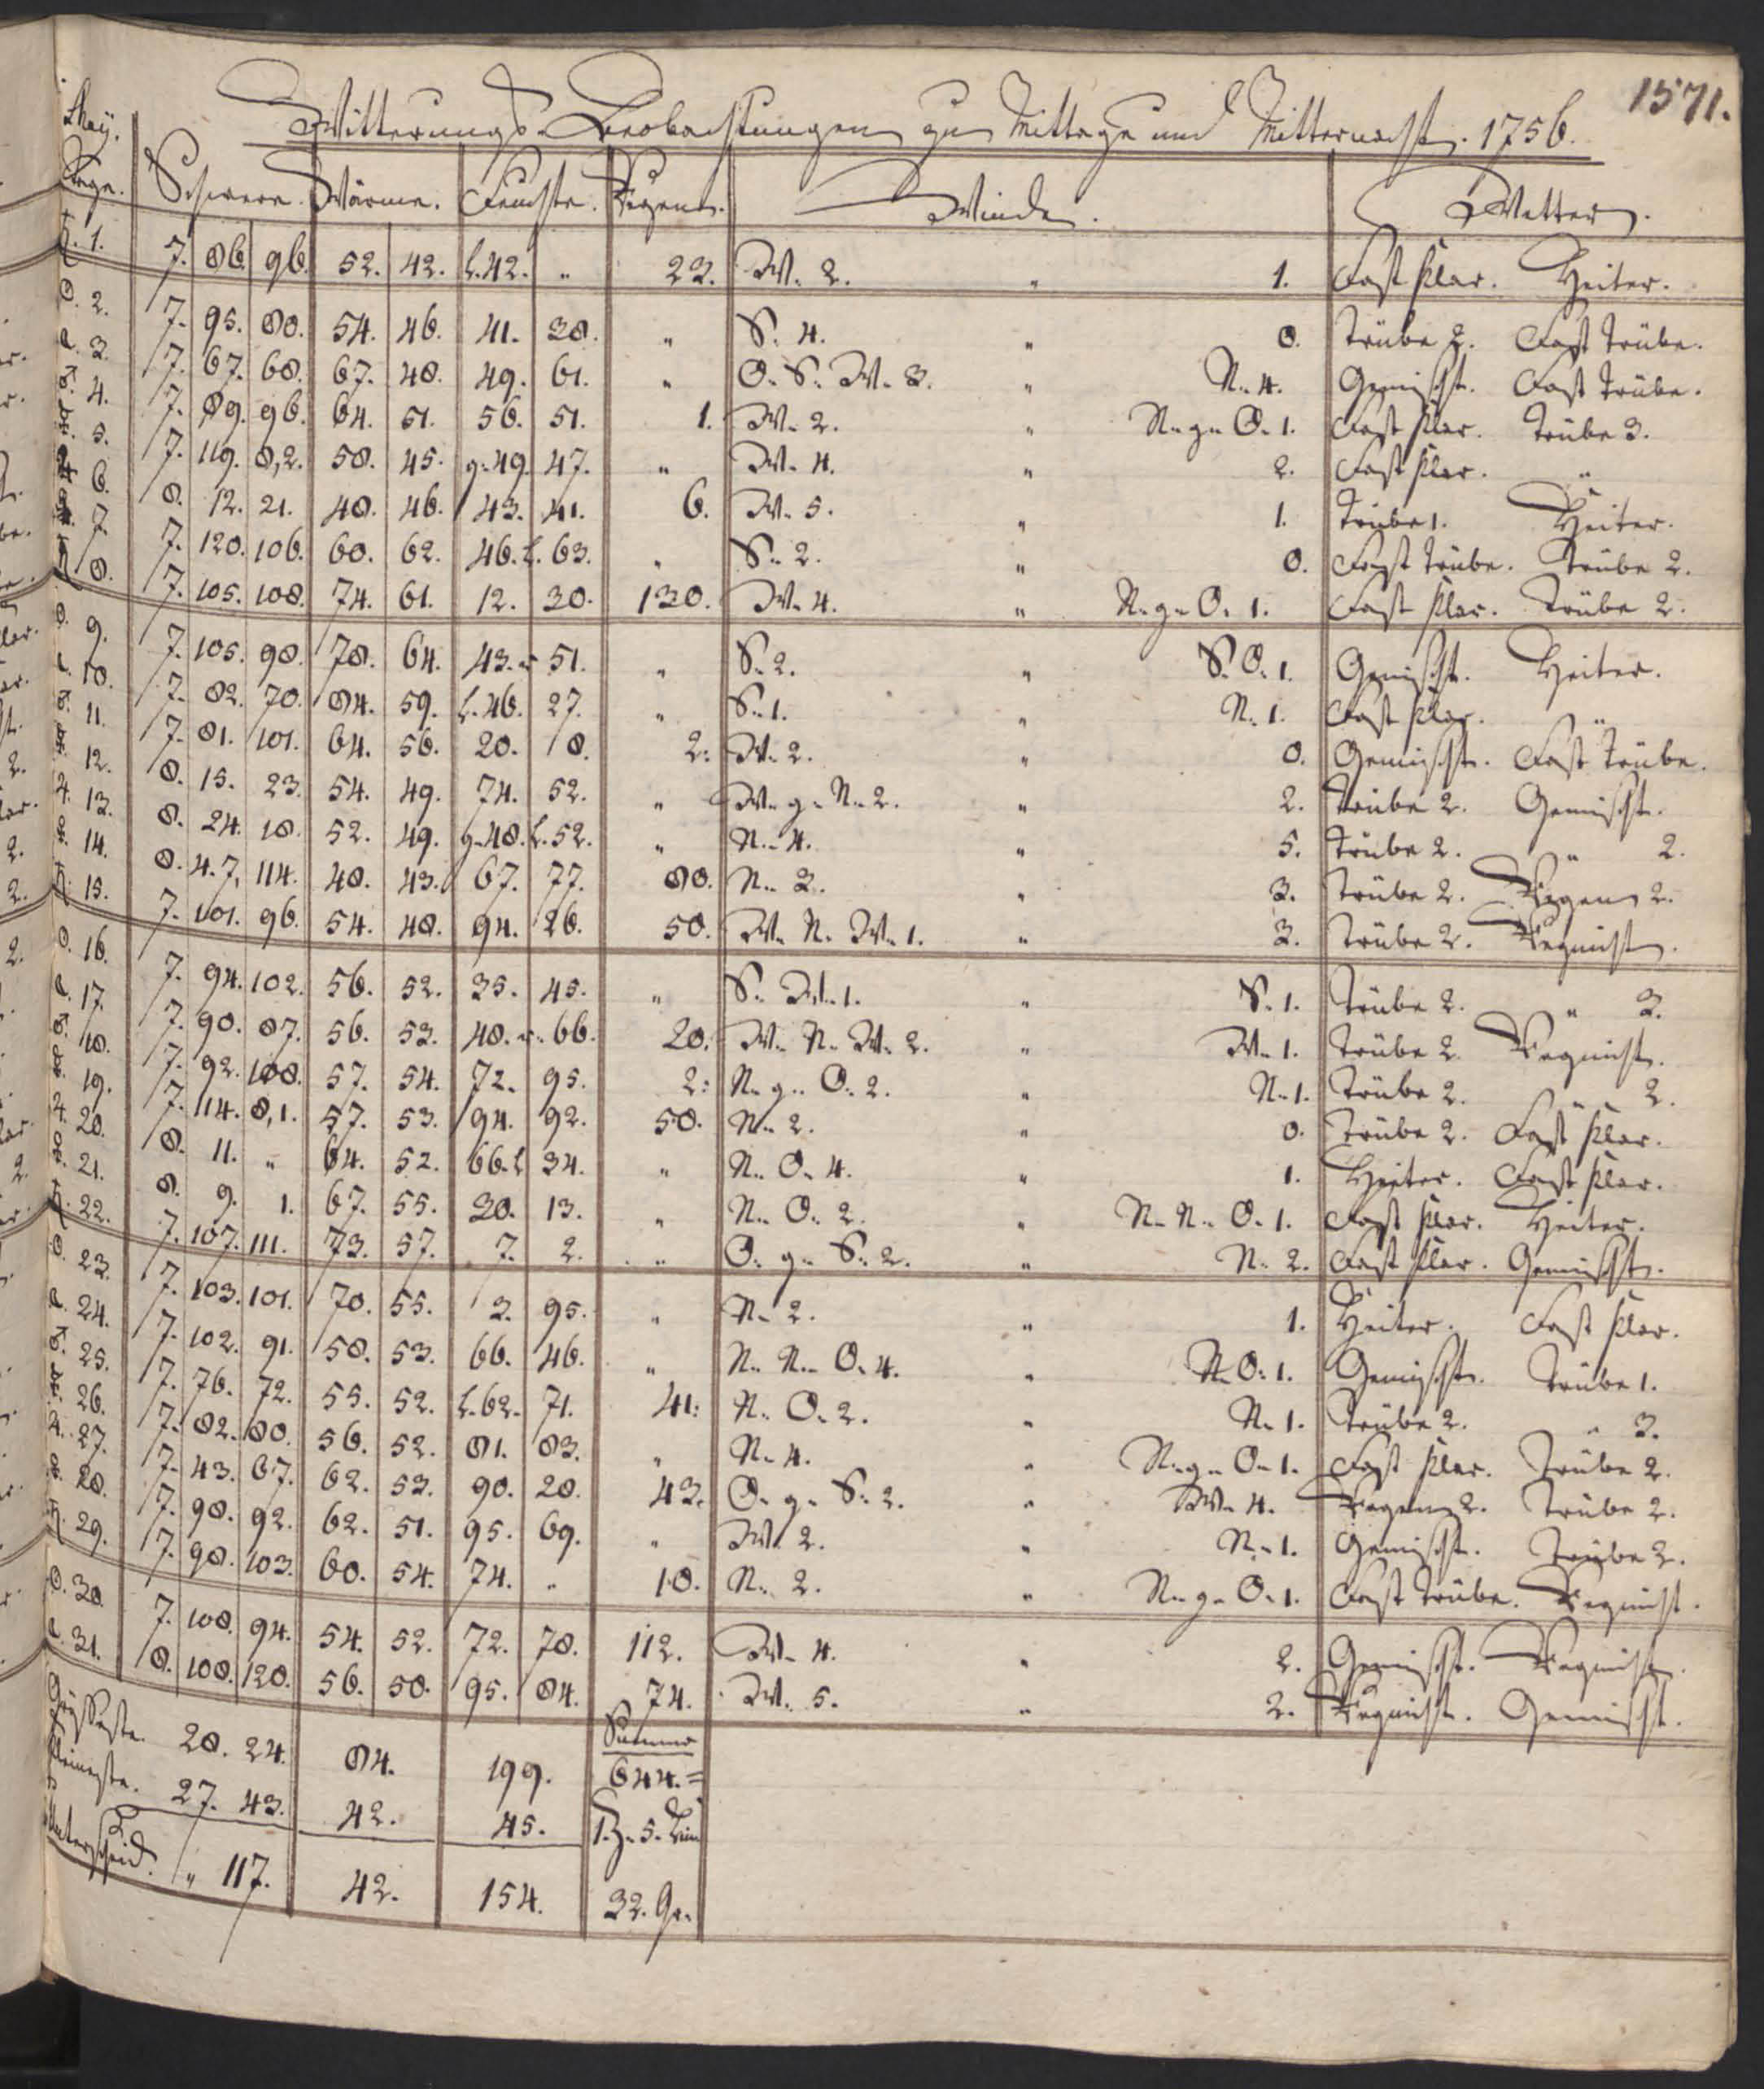 1571.
May.
Witterungs-Beobachtungen zu Mittage und Mitternacht. 1756.
Tage. Schwere. Wärme. Feuchte. Regen. Winde. Wetter.
♄. 1. 7. 86. 96. 52. 42. L.42. " 23. W. 2. " 1. Fast klar. Heiter.
☉. 2. 7. 95. 80. 54. 46. 41. 38. " S. 4. " 0. Trübe 2. Fast Trübe.
☾. 3. 7. 67. 68. 67. 48. 49. 61. " O. S. W. 3. " N. 4. Gemischt. Fast Trübe.
♂. 4. 7. 89. 96. 64. 51. 56. 51. 1. W. 2. " N. g. O. 1. Fast klar. Trübe 3.
☿. 5. 7. 119. 8,2. 58. 45. g.49. 47. " W. 4. " 2. Fast klar. "
♃. 6. 8. 12. 21. 48. 46. 43. 41. 6. W. 5. " 1. Trübe 1. Heiter.
♀. 7. 7. 120. 106. 60. 62. 46. L. 63. " S. 2. " 0. Fast Trübe. Trübe 2.
♄. 8. 7. 105. 108. 74. 61. 12. 30. 130. W. 4. " N. g. O. 1. Fast klar. Trübe 2.
☉. 9. 7. 105. 98. 78. 64. 43. 51. " S. 2. " S. O. 1. Gemischt. Heiter.
☾. 10. 7. 82. 70. 84. 59. L.46. 27. " S. 1. " N. 1. Fast klar. "
♂. 11. 7. 81. 101. 64. 56. 20. 8. 2: W. 2. " 0. Gemischt. Fast Trübe.
☿. 12. 8. 15. 23. 54. 49. 74. 52. " W. g. N. 2. " 2. Trübe 2. Gemischt.
♃. 13. 8. 24. 18. 52. 49. g.48. L.52. " N. 4. " 5. Trübe 2. " 2.
♀. 14. 8. 4. 7, 114. 48. 43. 67. 77. 80. N. 3. " 3. Trübe 2. Regen 2.
♄. 15. 7. 101. 96. 54. 48. 94. 26. 50. W. N. W. 1. " 3. Trübe 2. Regnicht.
☉. 16. 7. 94. 102. 56. 52. 35. 45. " S. W. 1. " S. 1. Trübe 2. " 3.
☾. 17. 7. 90. 87. 56. 53. 48. 66. 20. W. N. W. 2. " W. 1. Trübe 2. Regnicht.
♂. 18. 7. 92. 108. 57. 54. 72. 95. 2: N. g. O. 2. " N. 1. Trübe 2. " 2.
☿. 19. 7. 114. 8,1. 57. 53. 94. 92. 50. N. 2. " 0. Trübe 2. Fast klar.
♃. 20. 8. 11. " 64. 52. 66. L 34. " N. O. 4. " 1. Heiter. Fast klar.
♀. 21. 8. 9. 1. 67. 55. 30. 13. " N. O. 2. " N. N. O. 1. Fast klar. Heiter.
♄. 22. 7. 107. 111. 73. 57. 7. 2. " O. g. S. 2. " N. 2. Fast klar. Gemischt.
☉. 23. 7. 103. 101. 70. 55. 3. 95. " N. 2. " 1. Heiter. Fast klar.
☾. 24. 7. 102. 91. 58. 53. 66. 46. " N. N. O. 4. " N. O. 1. Gemischt. Trübe 1.
♂. 25. 7. 76. 72. 55. 52. L.62. 71. 41: N. O. 2. " N. 1. Trübe 2. " 3.
☿. 26. 7. 82. 80. 56. 52. 81. 83. " N. 4. " N. g. O. 1. Fast klar. Trübe 2.
♃. 27. 7. 43. 67. 62. 53. 90. 20. 43. O. g. S. 2. " W. 4. Regen 2. Trübe 2.
♀. 28. 7. 98. 92. 62. 51. 95. 69. " W. 2. " N. 1. Gemischt. Trübe 2.
♄. 29. 7. 98. 103. 60. 54. 74. " 10. N. 2. " N. g. O. 1. Fast Trübe. Regnicht.
☉. 30. 7. 108. 94. 54. 52. 72. 78. 112. W. 4. " 2. Gemischt. Regnicht.
☾. 31. 8. 108. 120. 56. 50. 95. 84. 74. W. 5. " 2. Regnicht. Gemischt.
Größeste. 28. 24. 84. 199. Summe 644. =
Kleineste. 27. 43. 42. 45. 1. Z. 5. Lin
Unterscheid. " 117. 42. 154. 32. Gr.